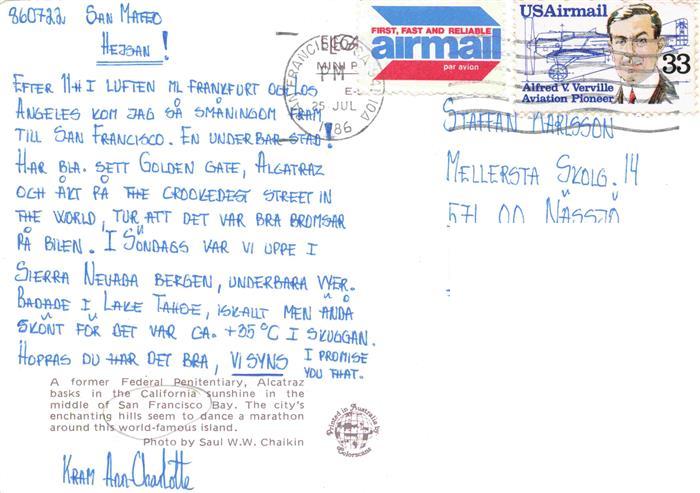 860722 SAN MATEO
HEJSAN!
EFTER 11H I LUFTEN ML FRANKFURT OCH LOS
ANGELES KOM JAG SÅ SMÅNINGOM FRAM
TILL SAN FRANCISCO. EN UNDERBAR STAD!
HAR BLA. SETT GOLDEN GATE, ALCATRAZ
OCH ÅKT PÅ THE CROOKEDEST STREET IN
THE WORLD, TUR ATT DET VAR BRA BROMSAR
PÅ BILEN. I SÖNDAGS VAR VI UPPE I
SIERRA NEVADA BERGEN, UNDERBARA VYER.
BADADE I LAKE TAHOE, ISKALLT MEN ÄNDÅ
SKÖNT FÖR DET VAR CA. +35°C I SKUGGAN.
HOPPAS DU HAR DET BRA, VI SYNS I PROMISE
YOU THAT.
A former Federal Penitentiary, Alcatraz
basks in the California sunshine in the
middle of San Francisco Bay. The city's
enchanting hills seem to dance a marathon
around this world-famous island.
Photo by Saul W.W. Chaikin
KRAM Ann-Charlotte
Printed in Australia by
Colorscans
SAN FRANCISCO
PM
25 JUL
1986
FIRST, FAST AND RELIABLE
airmail
par avion
USAirmail
33
Alfred V. Verville
Aviation Pioneer
STAFFAN KARLSSON
MELLERSTA SKOLG. 14
571 00 NÄSSJÖ